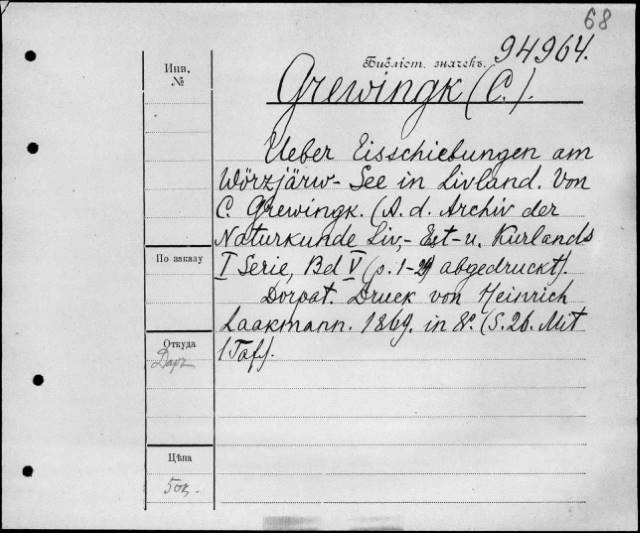 68
Библіот. значекъ. 94964.
Инв.
№
Grewingk (C.).
Ueber Eisschiebungen am
Wörzjärw- See in Livland. Von
C. Grewingk. (A. d. Archiv der
Naturkunde Liv,- Est- u. Kurlands
I Serie, Bd V (p. 1-29) abgedruckt).
Dorpat. Druck von Heinrich
Laakmann. 1869. in 8º. (S. 26. Mit
1 Taf).
По заказу
Откуда
Даръ
Цѣна
50к.